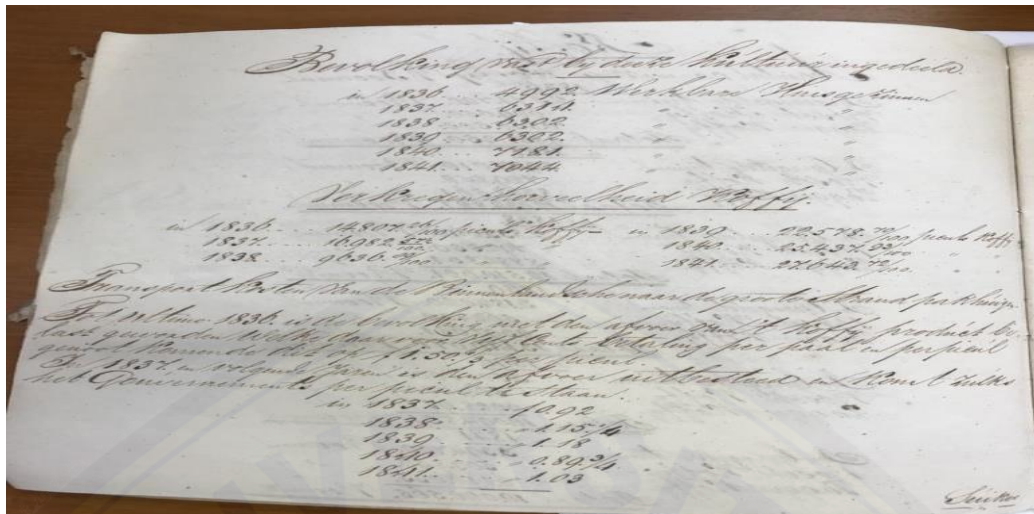 Bevolking met by deze Kultuur ingedeeld.
in 1836 .... 4992 Werkbare Huisgezinnen
1837 .... 6311. " "
1838 .... 6302. " "
1839 .... 6302. " "
1840 .... 7181. " "
1841 .... 7044. " "
Verkregen Hoeveelheid Koffij.
in 1836 .... 14807 picols Koffij in 1839 .... 22.578. picols Koffij
1837. .... 16982 " " 1840. .... 23.437. " "
1838. .... 9636. " " 1841. .... 27.643. " "
Transport kosten van de Binnenlanden naar de groote Strand pakhuizen
Tot ultimo 1836. is de bevolking met den afvoer van 't Koffij product be-
last geworden, welke daarvoor betaling per paal en per picul
genoot komende dit op f 1.50. per picul.
In 1837 en volgende Jaren is den afvoer uitbesteed en komt zulks
het Gouvernement per picul te staan.
in 1837. .... f 0.92
1838. .... " 1.15 1/4
1839. .... " 1.18
1840. .... " 0.89 3/4
1841. .... " 1.03
Suiker